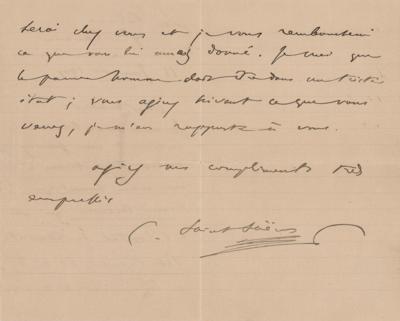 serai chez vous et je vous rembourserai
ce que vous lui aurez donné. Je crois que
le pauvre homme doit être dans un triste
état ; vous agirez suivant ce que vous
verrez, je m'en rapporte à vous.
agréez mes compliments très
empressés
C. Saint-Saëns